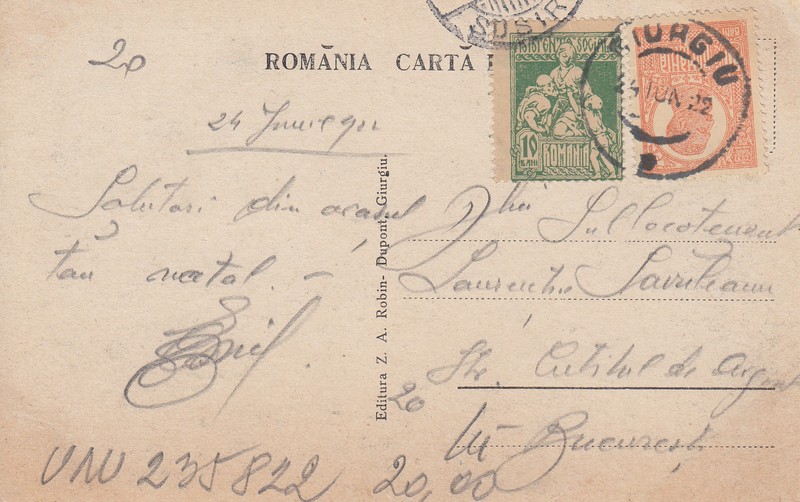 SOSIR
20
ROMÂNIA CARTĂ
ASISTENȚA SOCIALĂ
10
BANI
ROMANIA
GIURGIU
24 IUN 22
24 Iunie 922
Salutari din orasul
tău natal. –
Emil
Editura Z. A. Robin- Dupont, Giurgiu.
Dlui Sublocotenent
Laurentiu
Str. Cutitul de Argint
20
București
VNU 235822 20,00